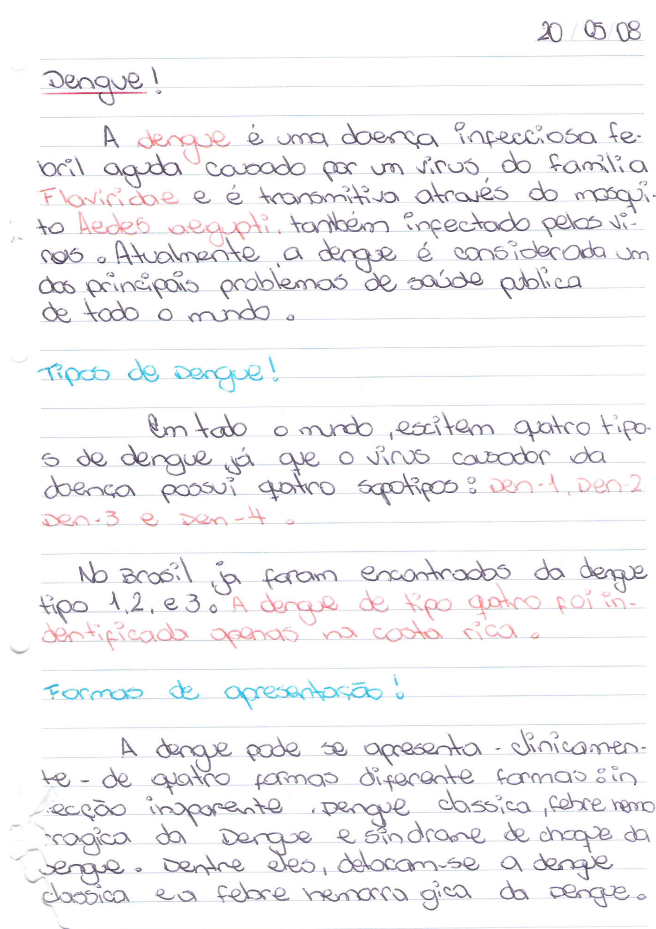 20/05/08
Dengue!
A dengue é uma doença infecciosa fe-
bril aguda causado por um virus, do familia
Flaviridae e é transmitiva através do mosqui-
to Aedes aegupti, também infectado pelos vi-
rus. Atualmente, a dengue é considerada um
dos principais problemas de saúde publica
de todo o mundo.
Tipos de Dengue!
Em todo o mundo, escitem quatro tipo-
s de dengue, já que o virus causador da
doença possui quatro sopotipos: Den-1, Den-2
Den-3 e Den-4.
No Brasil, já foram encontrados da dengue
tipo 1,2, e 3. A dengue de tipo quatro foi in-
dentificada apenas na costa rica.
Formas de apresentação!
A dengue pode se apresenta - clinicamen-
te - de quatro formas diferente formas: in
ecção inaparente, Dengue classica, febre hemo
rragica da Dengue e síndrome de choque da
Dengue. Dentre eles, detacam-se a dengue
classica e a febre hemorra gica da Dengue.